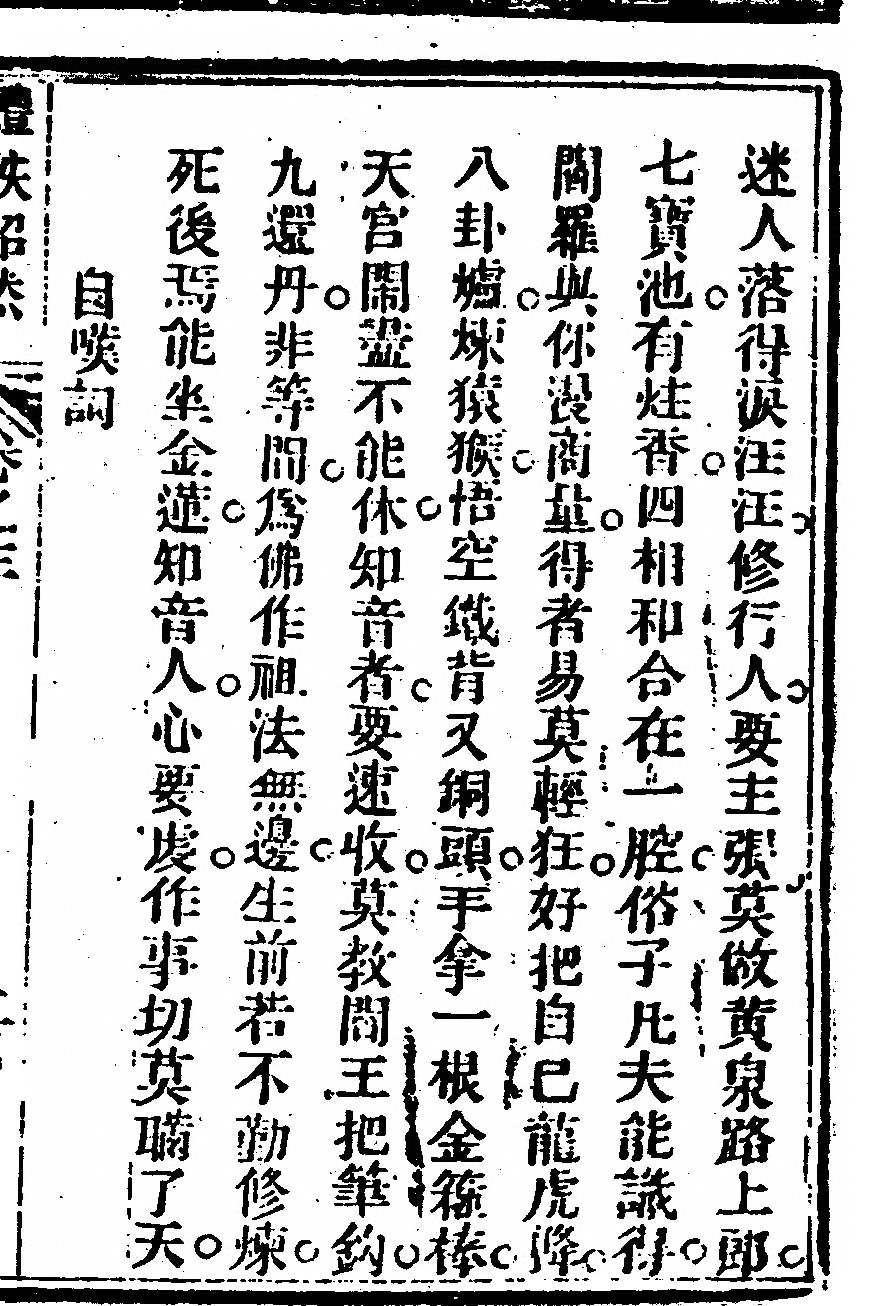 迷人落得淚汪汪修行人要主張莫做黃泉路上郎
七寶池有炷香四相和合在一腔俗子凡夫能識得
閻羅與你漫商量得者易莫輕狂好把自己龍虎降
八卦爐煉猿猴悟空鐵背又銅頭手拿一根金箍棒
天宮鬧盡不能休知音者要速收莫教閻王把筆鈎
九還丹非等閒為佛作祖法無邊生前若不勤修煉
死後焉能坐金蓮知音人心要虔作事切莫瞞了天
自嘆詞